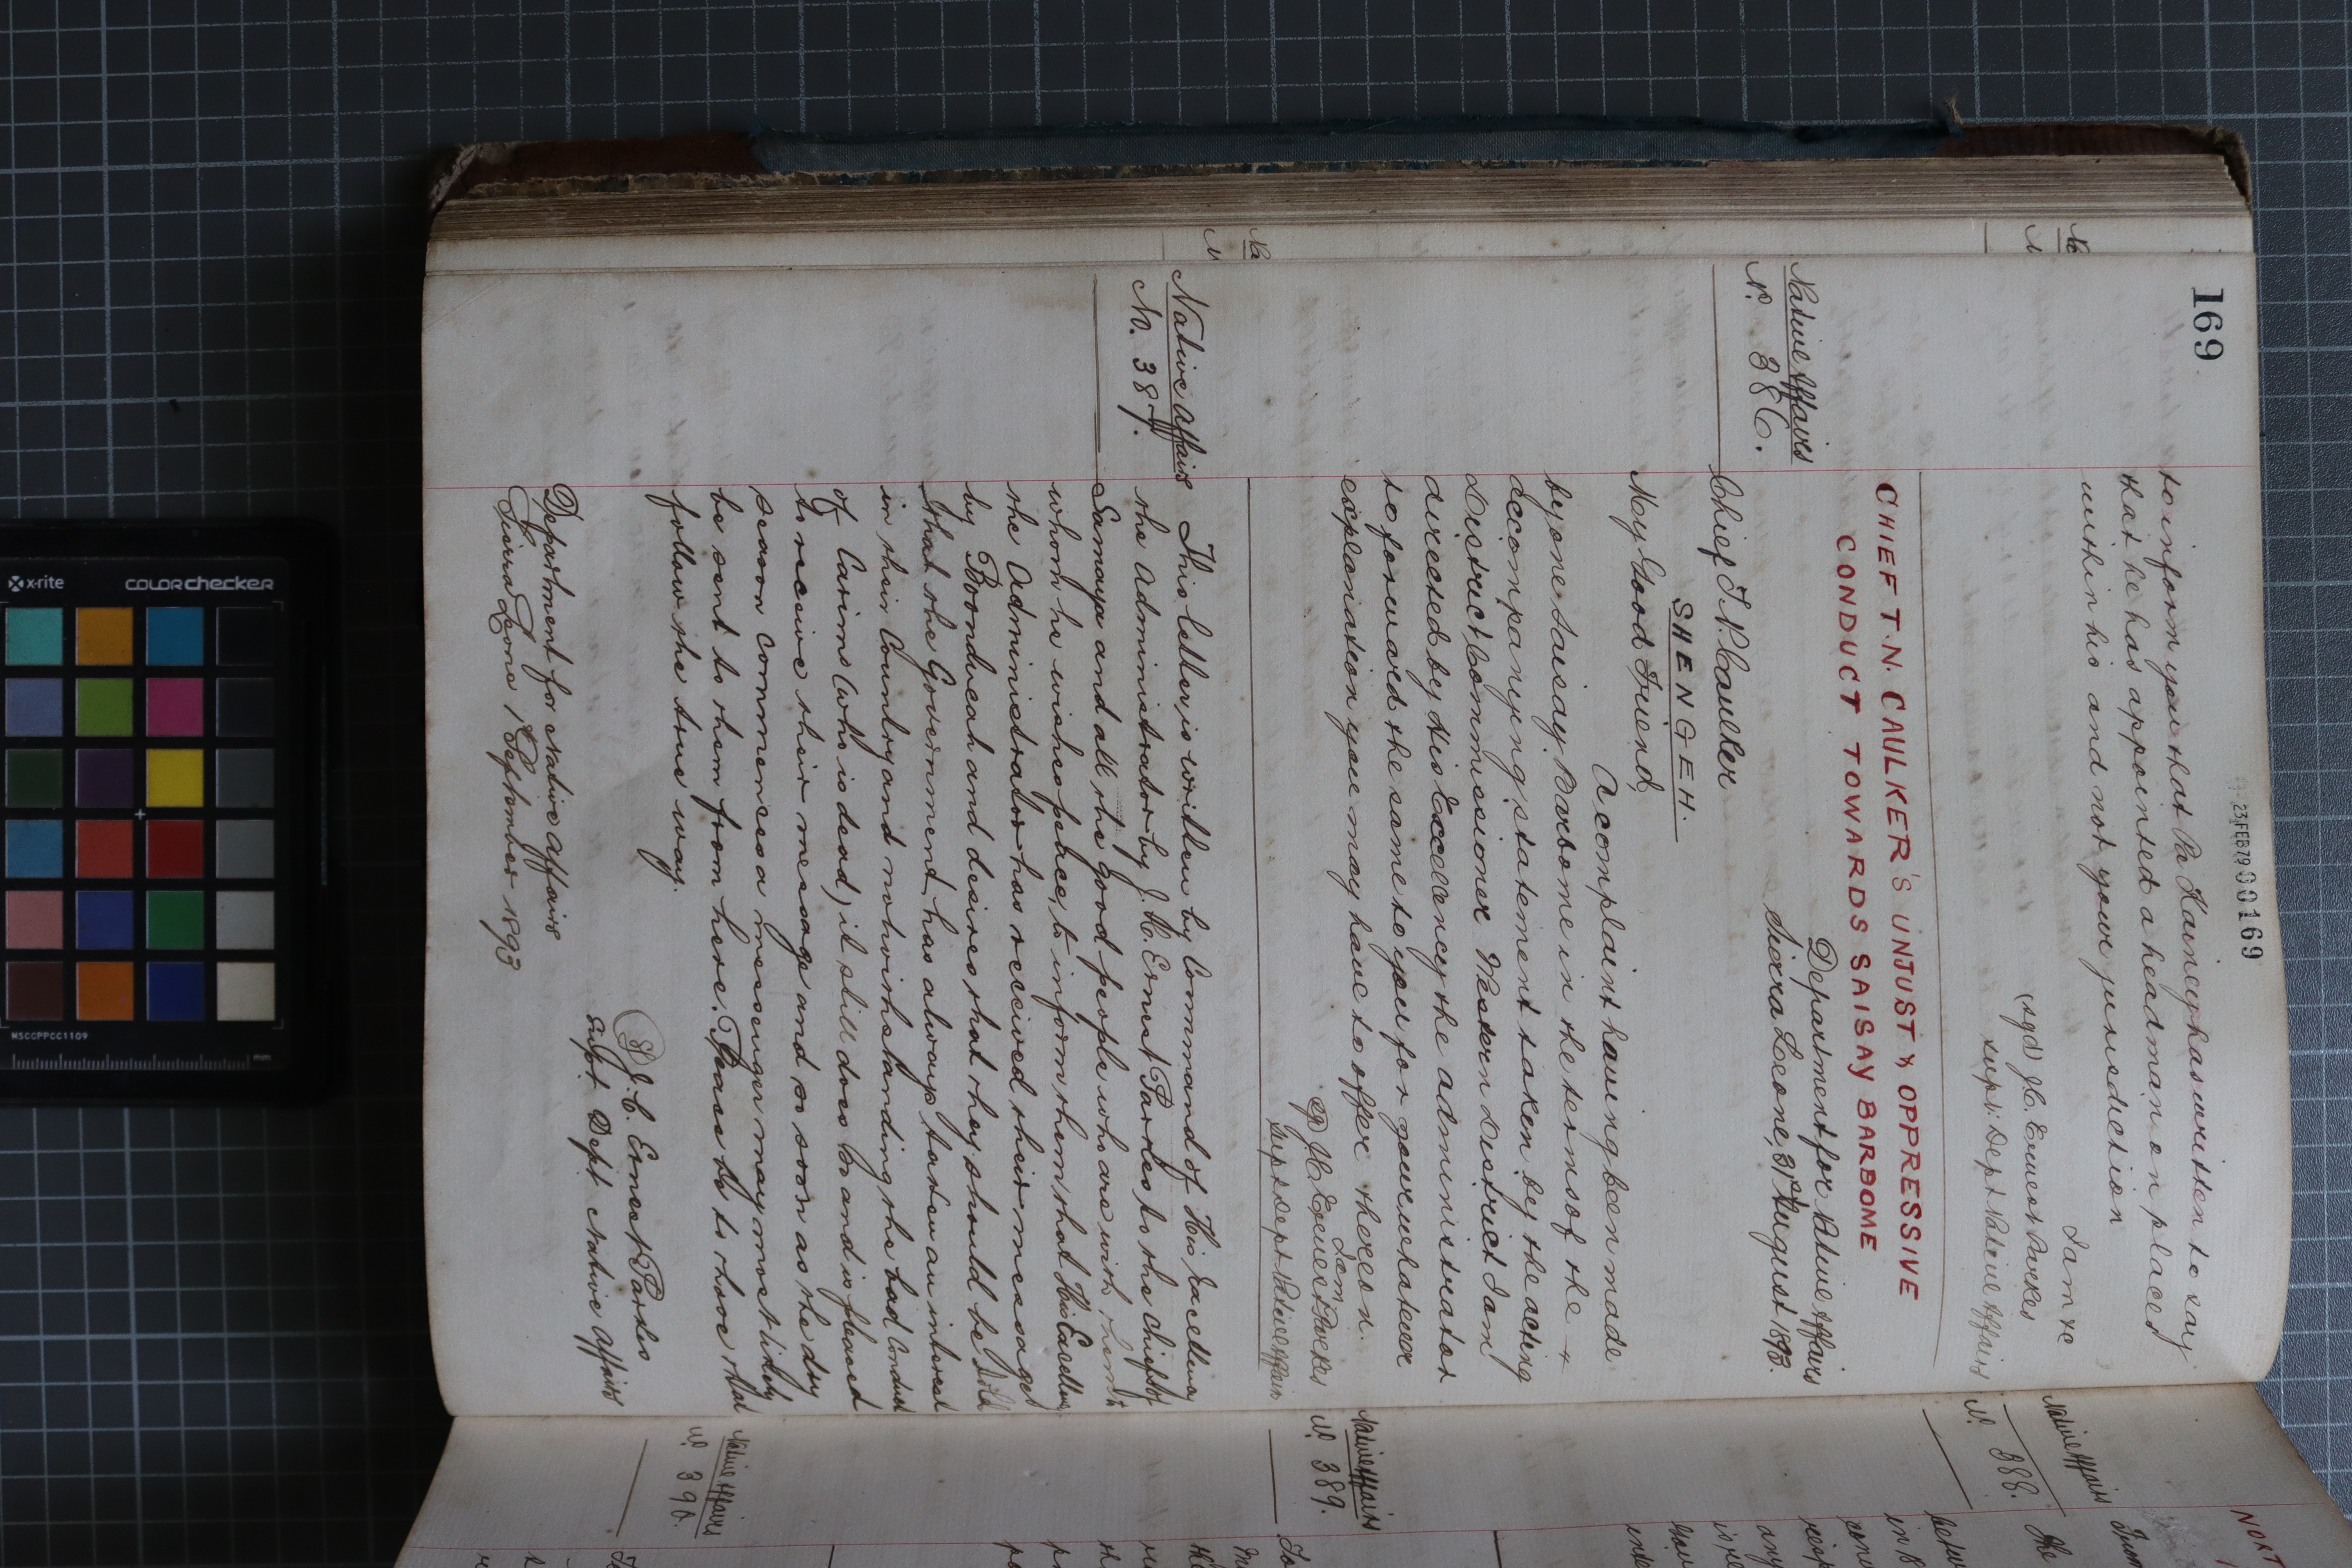 169
23 FEB 79 00169
to inform you that Pa Kainey has written to say
that he has appointed a headman on placed
within his and not your jurisdiction
I am &c
(sgd) J.C. Ernest Parkes
Supt. Dept Native Affairs
CHIEF T. N. CAULKER'S UNJUST & OPPRESSIVE
CONDUCT TOWARDS SAISAY BARBOME
Native Affairs
No. 386.
Department for Native Affairs
Sierra Leone, 31st August 1893.
Chief T. N. Caulker
SHENGEH.
My Good Friend,
A complaint having been made
by one Saisay Barbome in the terms of the
accompanying statement taken by the acting
District Commissioner Western District I am
directed by His Excellency the Administrator
to forward the same to you for your whatever
explanation you may have to offer thereon.
I am
(sgd) J.C. Ernest Parkes
Supt Dept Native Affairs
Native Affairs
No. 387.
This letter is written by Command of His Excellency
the Administrator by J. C. Ernest Parkes to the Chiefs of
Samaya and all the good people who are with them to
whom he wishes peace, to inform them that His Excellency
the Administrator has received their message
by Boonducah and desires that they should be told
that the Government has always taken an interest
in their Country and notwithstanding the bad Conduct
of Carimu (who is dead) it still does so and is pleased
to receive their message and so soon as the dry
season commences a messenger may most likely
be sent to them from here. Peace be to those that
follow the true way.
(Sgd) J. C. Ernest Parkes
Supt. Dept. Native Affairs
Department for Native Affairs
Sierra Leone 1st September 1893
Native Affairs
No. 388.
Native Affairs
No. 389.
Native Affairs
No. 390.